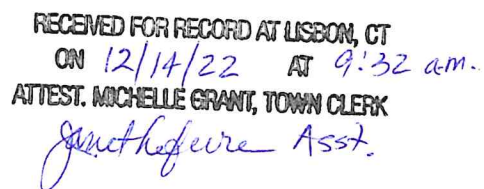 RECEIVED FOR RECORD AT LISBON, CT
ON 12/14/22 AT 9:32 a.m.
ATTEST. MICHELLE GRANT, TOWN CLERK
Asst.